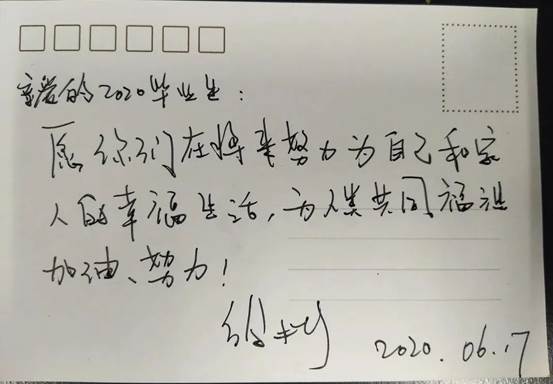 亲爱的2020毕业生：
愿你们在将来努力为自己和家
人的幸福生活，为人类共同福祉
加油、努力！
2020.06.17